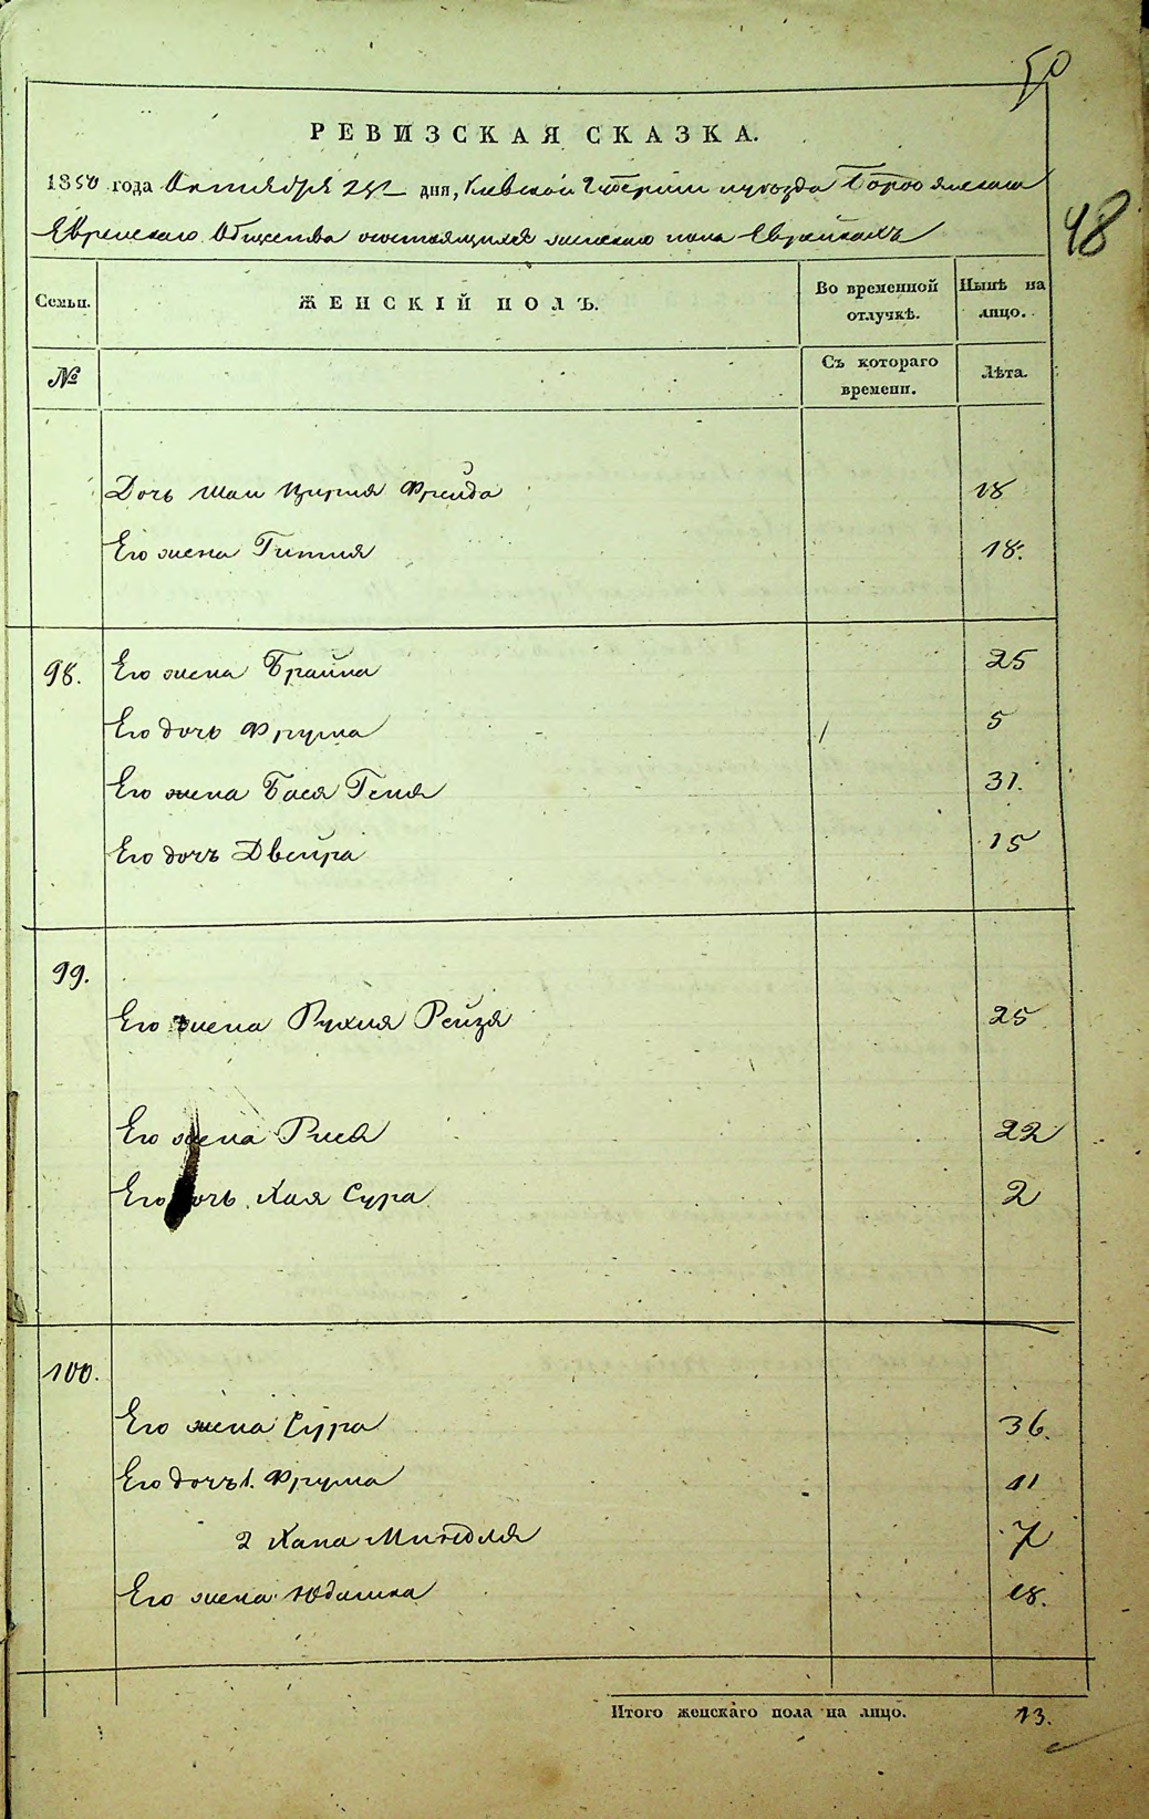 50
РЕВИЗСКАЯ СКАЗКА.
1850 года Октября 25 дня, Киевской Губернии и уезда Бородянскаго
Еврейскаго Общества состоящихся женскаго пола Еврейкахъ
48
Семьи. ЖЕНСКІЙ ПОЛЪ. Во временной отлучкѣ. Нынѣ на лицо.
№ Съ котораго времени. Лѣта.
Дочь Цирля Фрейда 18
Его жена Гитля 18.
98. Его жена Брайна 25
Его дочь Фрума 5
Его жена Бася Геня 31.
Его дочь Двейра 15
99.
Его жена Рухля Рейзя 25
Его жена Рися 22
Его дочь Хая Сура 2
100.
Его жена Сура 36.
Его дочь 1. Фрума 11
2 Хана 7
Его жена 18.
Итого женскаго пола на лицо. 13.